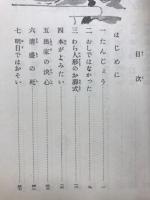 目次
はじめに
一 たんじょう
二 おしではなかった
三 わら人形のお葬式
四 本がよみたい
五 出家の決心
六 清盛の死
七 明日ではおそい